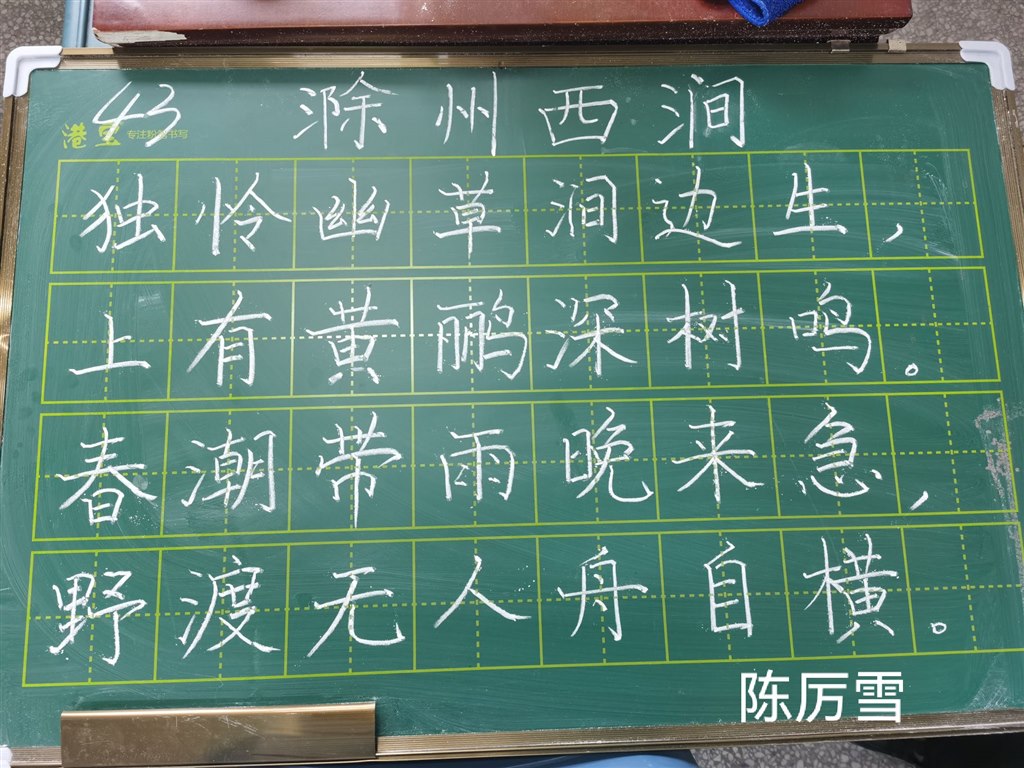 43 滁州西涧
港宝 专注粉笔书写
独怜幽草涧边生，
上有黄鹂深树鸣。
春潮带雨晚来急，
野渡无人舟自横。
陈厉雪